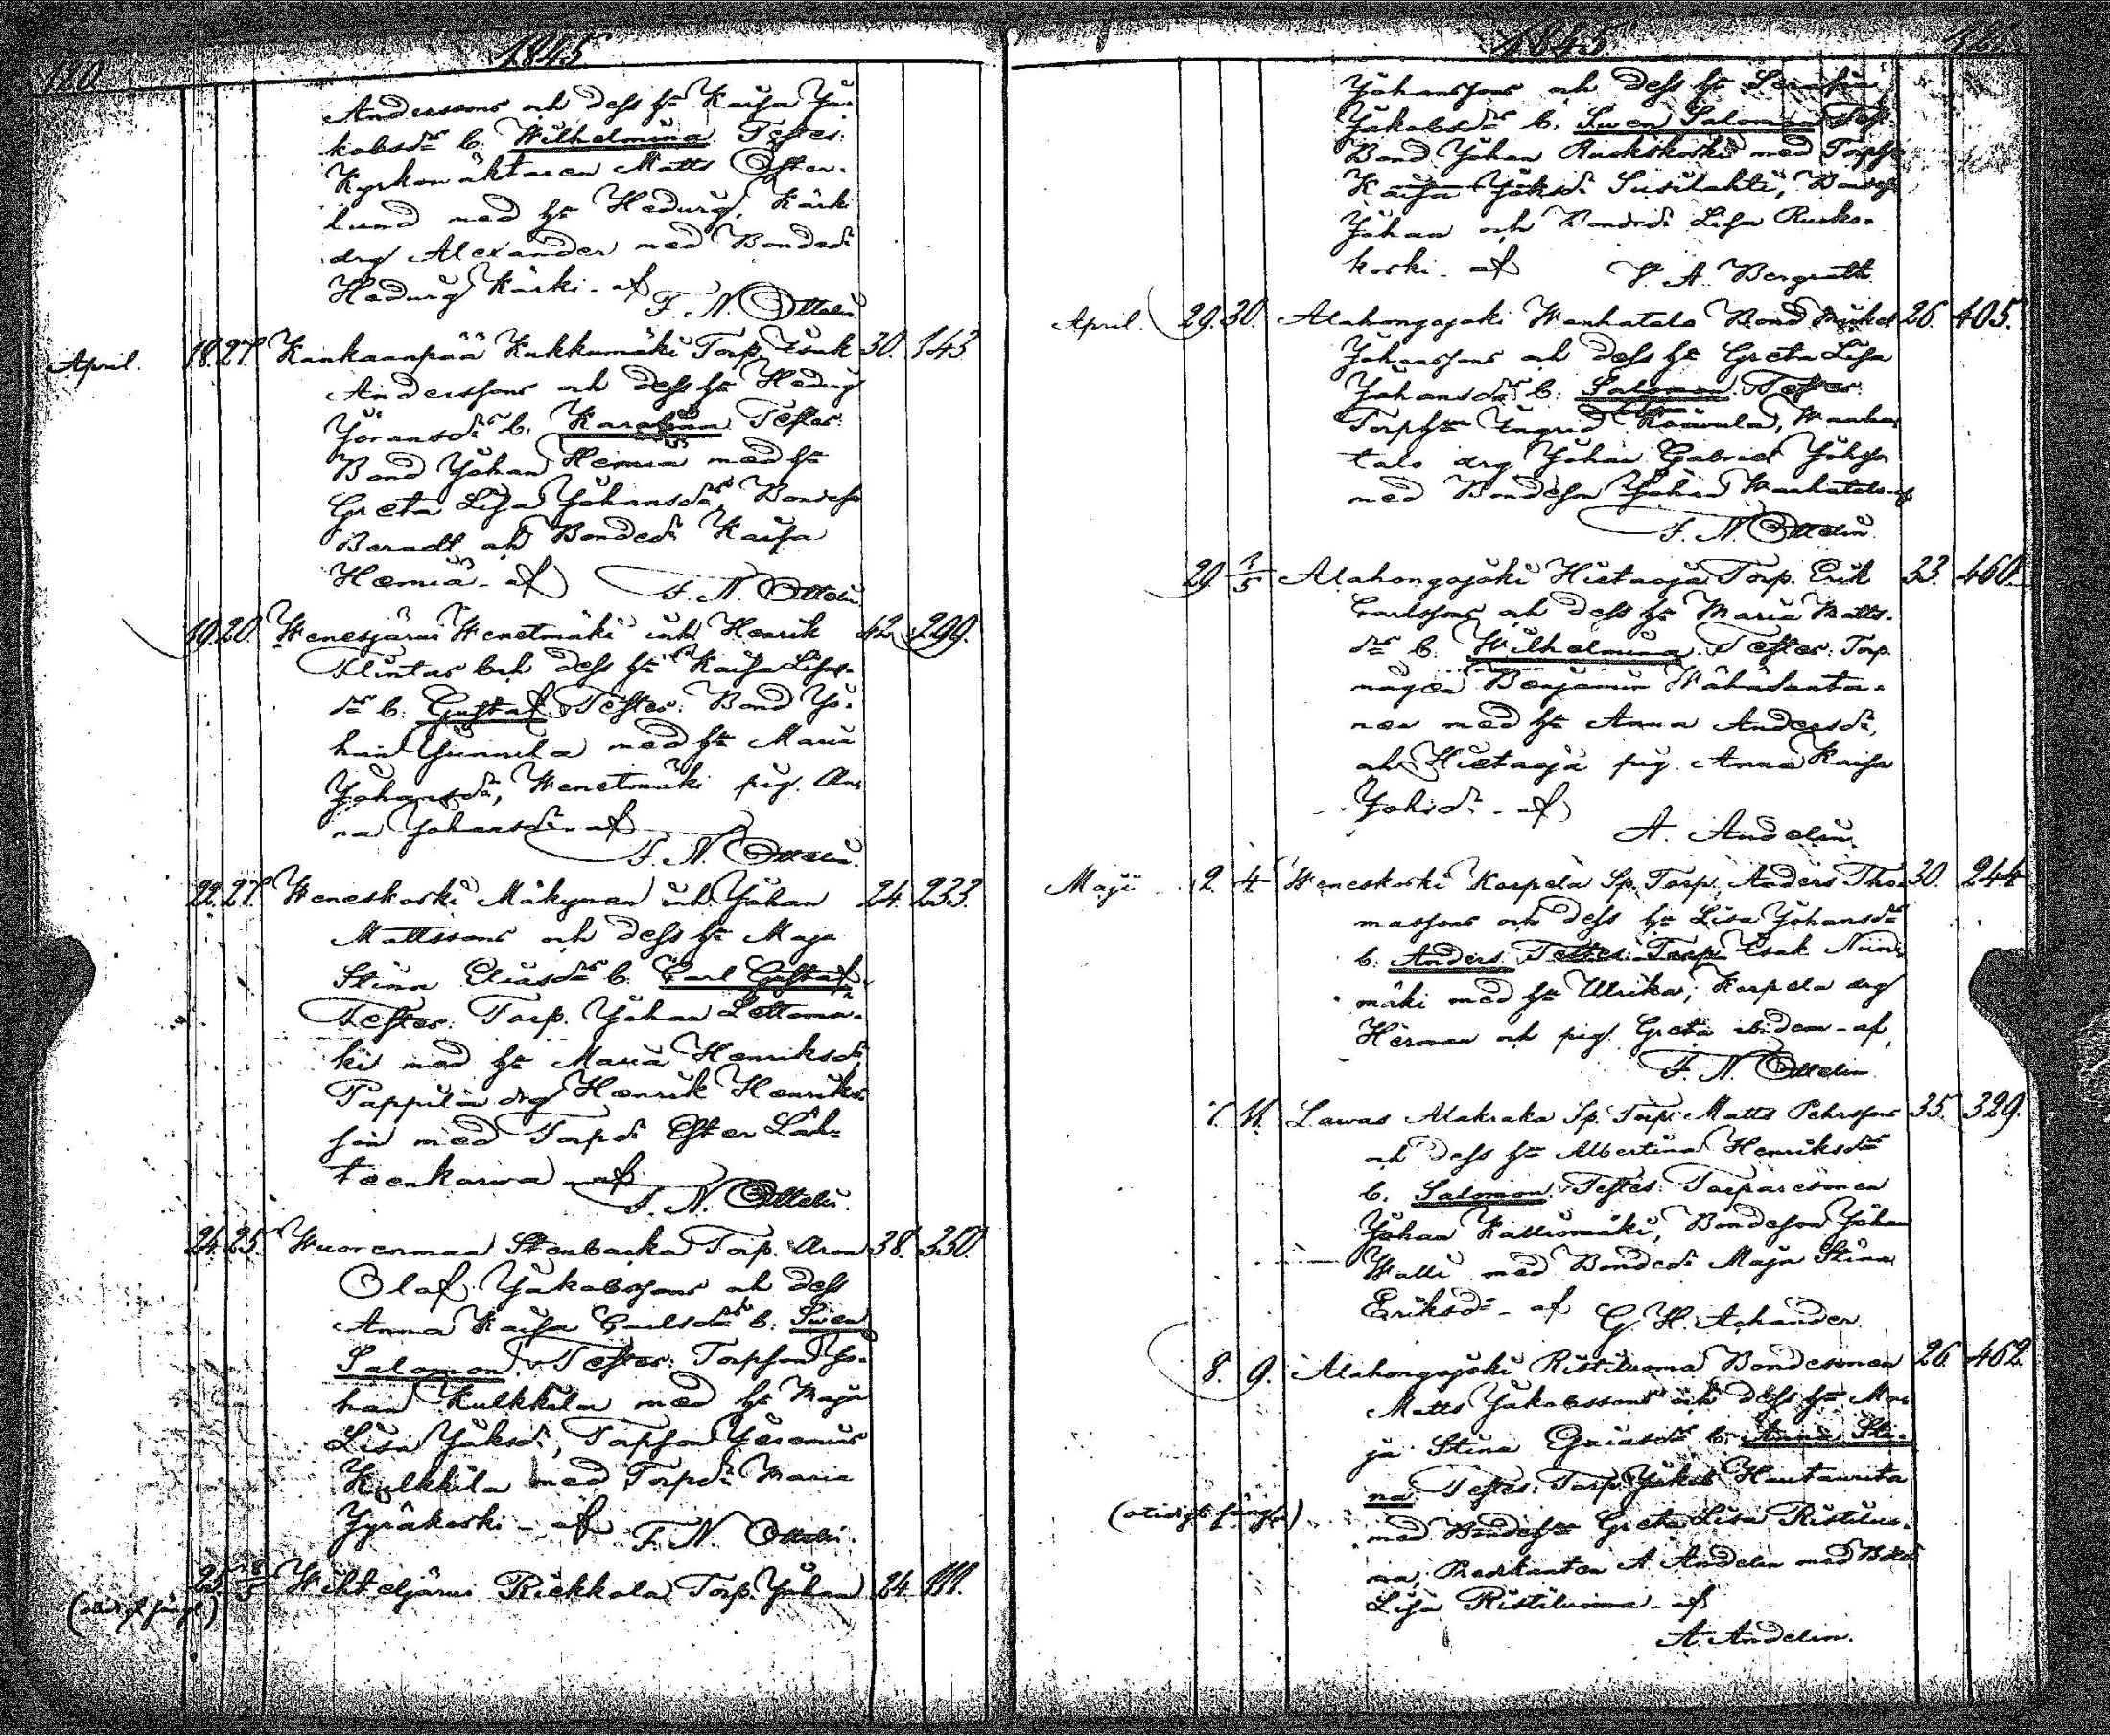 120
1845
Anderssons och dess hu Kaisa Ja-
kobsdr b. Wilhelmina Testes:
Kyrkowäktaren Matts Östen-
lund med hu Hedvig, Kärki
drg Alexander med Bondedr
Hedvig Kärki - af
F. N. Ottelin
April. 18. 27. Kankaanpää Kukkumäki Torp. Isak 30. 143
Anderssons och dess hu Hedvig
Göransdr b. Karolina Testes:
Bond Johan Hemiä med hu
Greta Lisa Johansdr, Bondeson
Berndt och Bondedr Kaisa
Hemiä - af F. N. Ottelin
19. 20. Wenesjärvi Wenetmäki inh. Henrik 42. 299.
Flintas och dess hu Kaisa Lisas-
dr b. Gustaf Testes: Bond Jo-
han Junnila med hu Maria
Johansdr, Wenetmäki pig. An-
na Johansdr - af
F. N. Ottelin.
22. 27. Weneskoski Mäkynen inh. Johan 24. 233.
Mattssons och dess hu Maja
Stina Eliasdr b. Carl Gustaf
Testes: Torp. Johan Lettomä-
ki med hu Maria Henriksdr,
Pappila drg Henrik Henriks-
son med Torpdr Ester Läh-
teenkorwa - af
F. N. Ottelin.
24. 25. Wuorenmaa Stenbacka Torp. Aron 38. 350.
Olaf Jakobssons och dess
Anna Kaisa Carlsdr b. Swen
Salomon Testes: Torpson Jo-
han Kulkkila med hu Maja
Lisa Jaksdr, Torpson Jeremias
Kulkkila med Torpdr Maria
Jyräkoski - af F. N. Ottelin.
25. Wihteljärwi Riekkola Torp. Johan 24. 111.
1845
121
Johanssons och dess hu
Jakobsdr b. Swen Salomon Test:
Bond Johan Ruokokoski med Torphu
Kaisa Jaksdr Susilahti, Bondes
Johan och Bondedr Lisa Ruoko-
koski - af F. A. Bergroth
April. 29. 30. Alahongojoki Wanhatalo Bond Mickel 26. 405.
Johanssons och dess hu Greta Lisa
Johansdr b. Salomon Testes:
Torphu Ingrid Koiwula, Wanha-
talo drg Johan Gabriel Johss
med Bondeson Johan Wanhatalo - af
F. N. Ottelin.
29. 1/5 Alahongojoki Hietaoja Torp. Erik 33. 460.
Carlssons och dess hu Maria Matts-
dr b. Wilhelmina Testes: Torp.
mågen Benjamin Wähäsanta-
nen med hu Anna Andersdr,
och Hietaoja pig. Anna Kaisa
Johsdr - af
A. Andelin.
Maji 2. 4. Weneskoski Korpela Sp. Torp. Anders Tho- 30. 244
massons och dess hu Lisa Johansdr
b. Anders Testes: Torp. Isak Niini-
mäki med hu Ulrika, Korpela drg
Herman och pig. Greta ibidem - af,
F. N. Ottelin
7. 11. Lawas Alakraka Sp. Torp. Matts Pehrssons 35. 329.
och dess hu Albertina Henriksdr
b. Salomon Testes: Torparesonen
Johan Kalliomäki, Bondeson Johan
Walli med Bondedr Maja Stina
Eriksdr - af G. H. Achander.
8. 9. Alahongojoki Ristiluoma Bondesonen 26. 462.
Matts Jakobssons och dess hu Ma-
ja Stina b. Anna Sti-
na Testes: Torp. Jakob Hautaniitu
med Bondehu Greta Lisa Ristiluo-
ma, Predikanten A. Andelin med Bdr
Lisa Ristiluoma - af
A. Andelin.